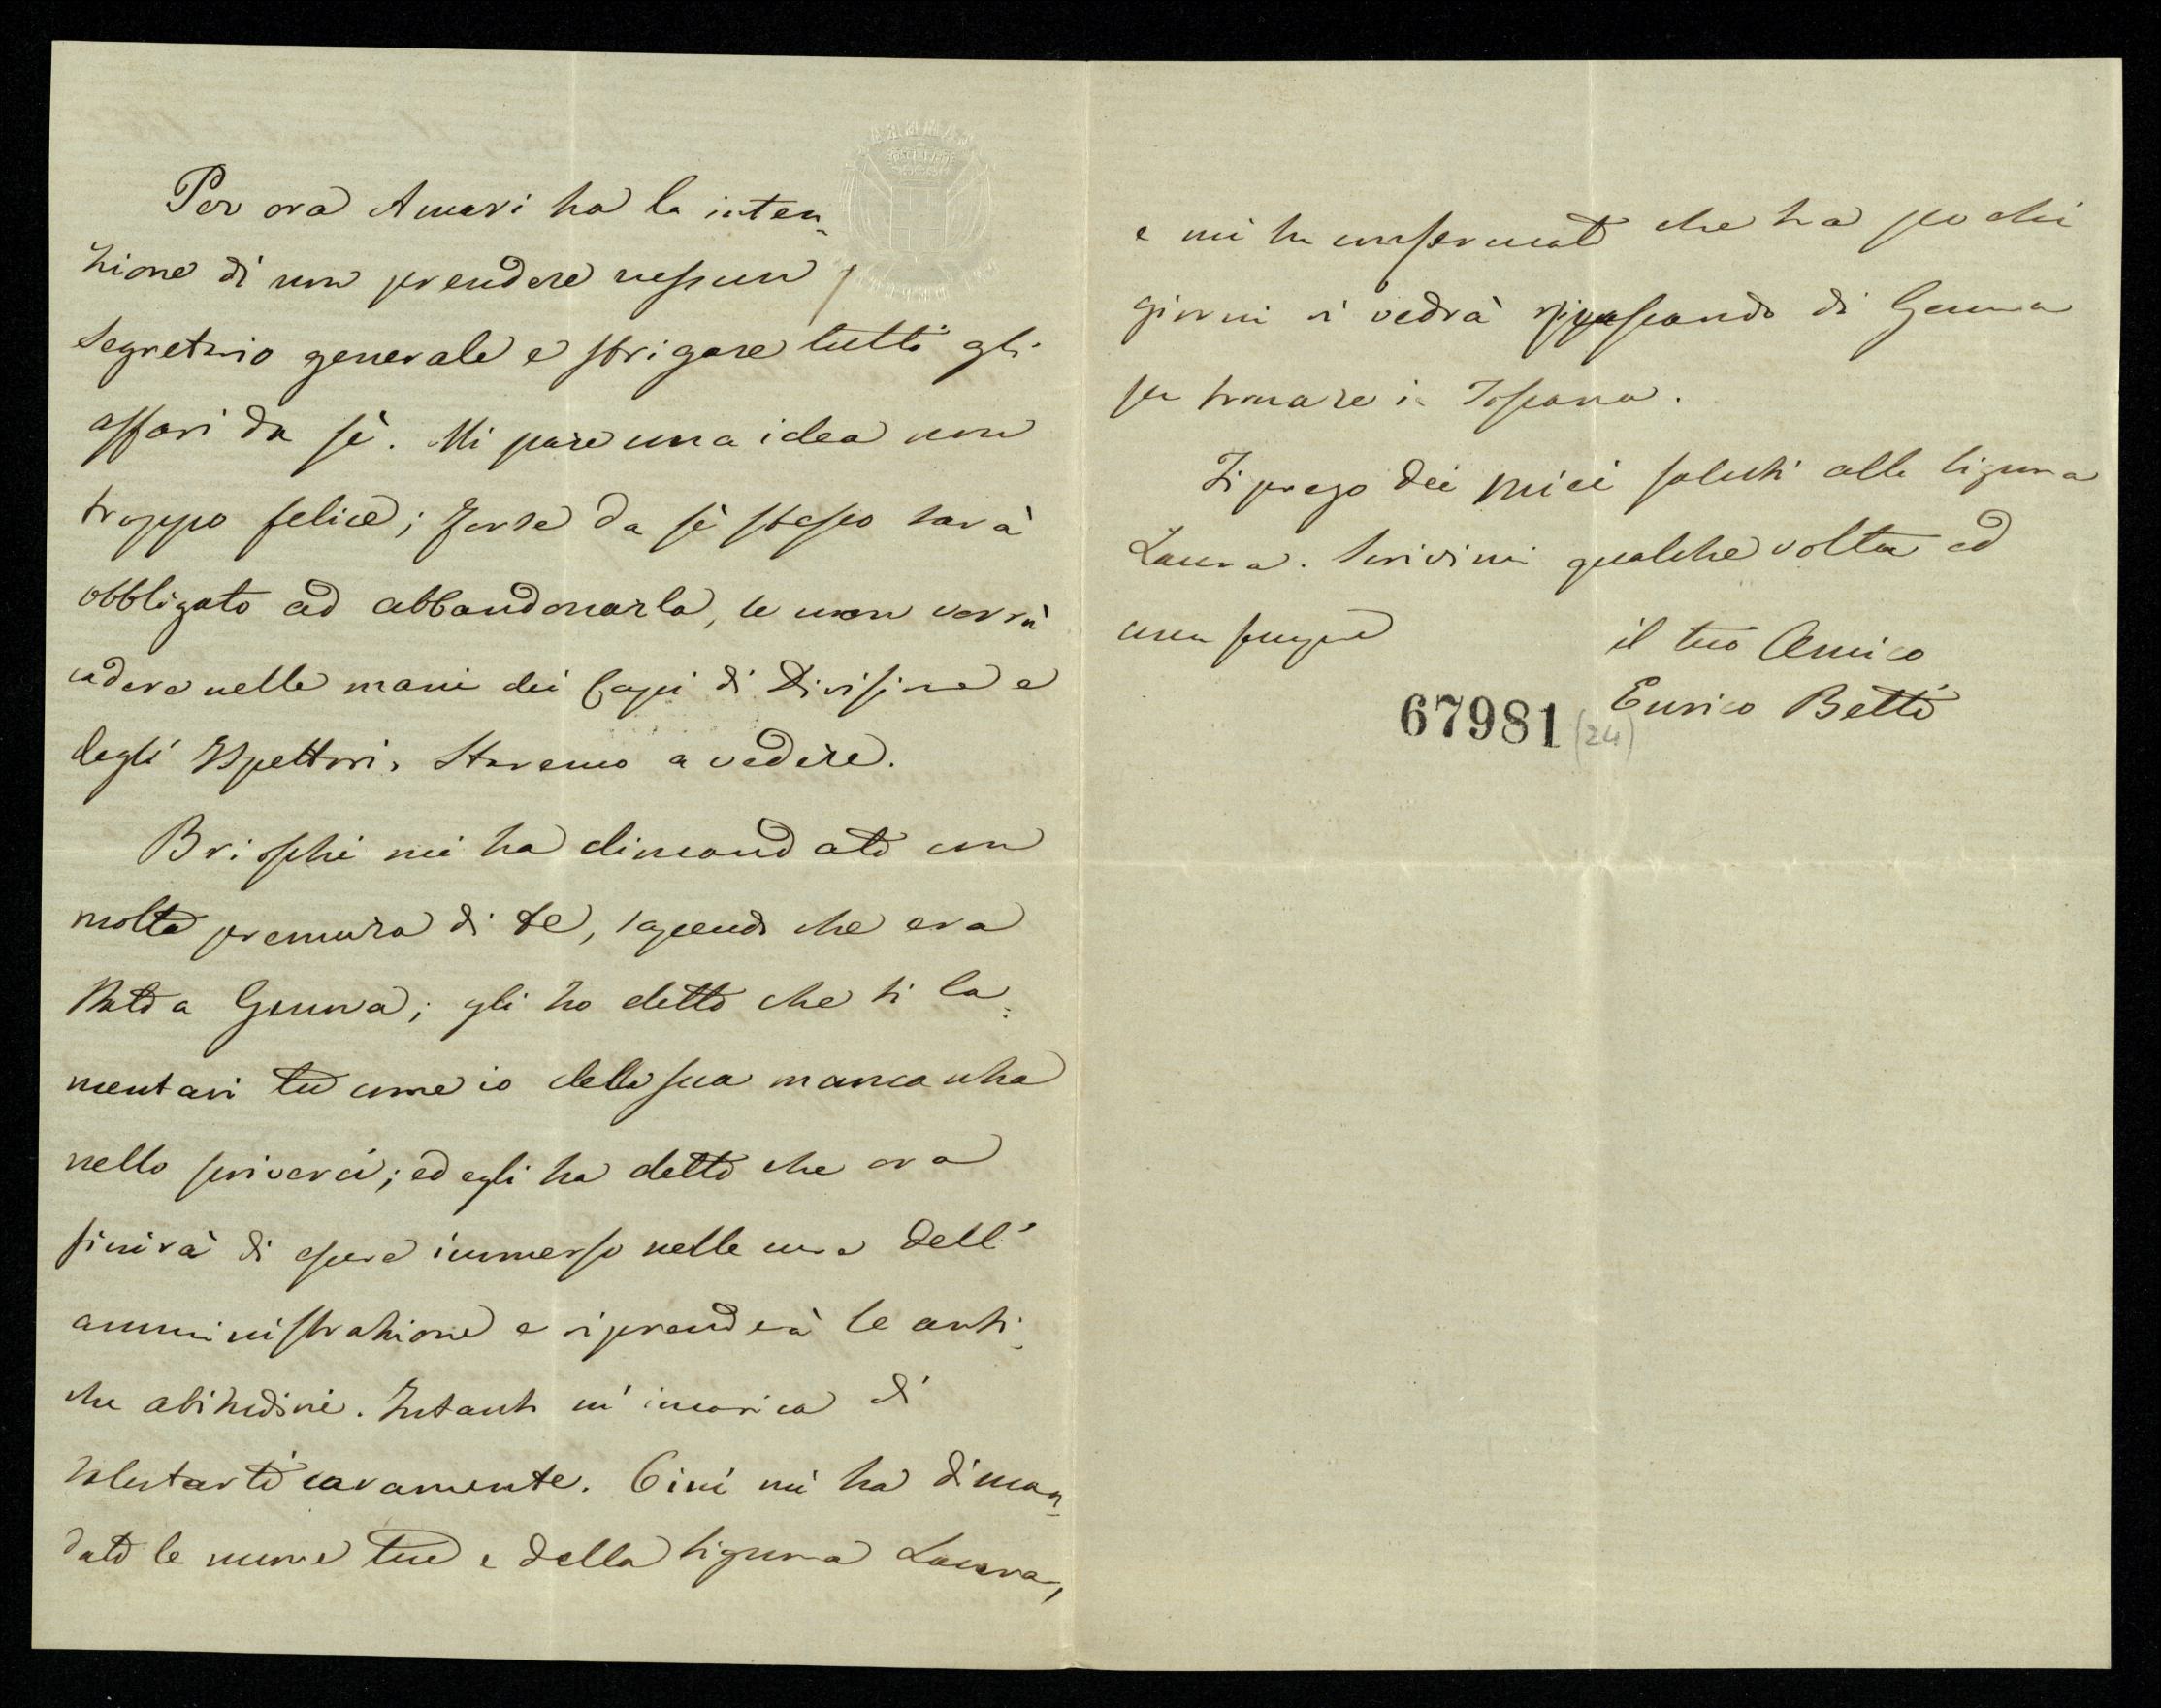 Per ora Amari ha la inten-
zione di non prendere nessun
Segretario generale e strigare tutti gli
affari da sè. Mi pare una idea non
troppo felice; forse da sè stesso sarà
obbligato ad abbandonarla, se non vorrà
cadere nelle mani dei Capi di Divisione e
degli Ispettori. Staremo a vedere.
Brioschi mi ha dimandato con
molta premura di te, sapendo che era
stato a Genova; gli ho detto che ti la-
mentavi tu come io della sua mancanza
nello scriverci; ed egli ha detto che ora
finirà di essere immerso nelle cure dell'
amministrazione e riprenderà le anti-
che abitudini. Intanto m'incarica di
salutarti caramente. Cini mi ha diman-
dato le nuove tue e della Signora Laura,
e mi ha confermato che tra pochi
giorni si vedrà ripassando di Genova
per tornare in Toscana.
Ti prego dei miei saluti alla Signora
Laura. Scrivimi qualche volta ed
ama sempre
il tuo Amico
Enrico Betti
67981 (24)